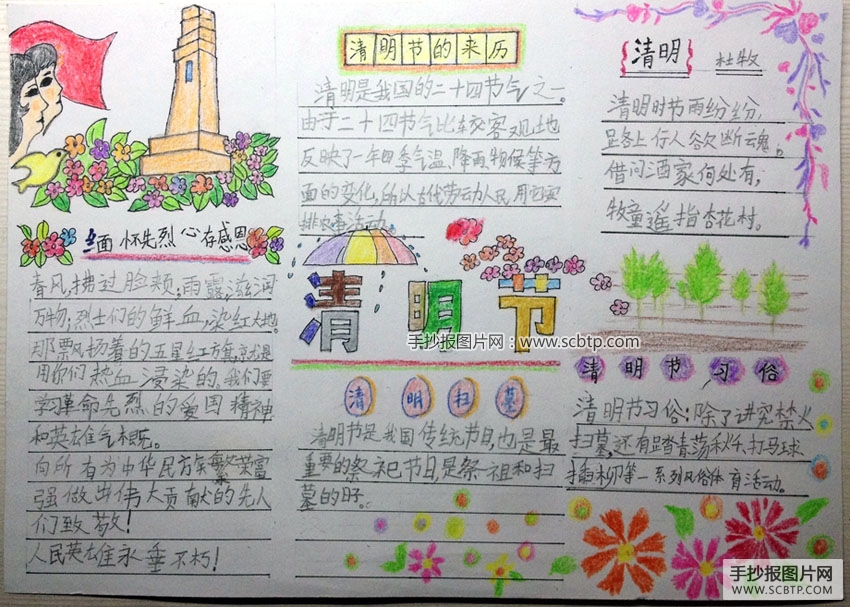 缅怀先烈 心存感恩
春风拂过脸颊,雨露滋润
万物;烈士们的鲜血,染红大地
那飘扬着的五星红旗,就是
用你们热血浸染的,我们要
学习革命先烈的爱国精神
和英雄气概。
向所有为中华民族繁荣富
强做出伟大贡献的先人
们致敬!
人民英雄永垂不朽!
清明节的来历
清明是我国的二十四节气之一。
由于二十四节气比较客观地
反映了一年四季气温、降雨、物候等方
面的变化,所以古代劳动人民用它安
排农事活动。
清明节
手抄报图片网:www.scbtp.com
清明扫墓
清明节是我国传统节日,也是最
重要的祭祀节日,是祭祖和扫
墓的日子。
清明 杜牧
清明时节雨纷纷,
路上行人欲断魂。
借问酒家何处有,
牧童遥指杏花村。
清明节习俗
清明节习俗:除了讲究禁火
扫墓,还有踏青荡秋千、打马球
插柳等一系列风俗体育活动。
手抄报图片网
WWW.SCBTP.COM